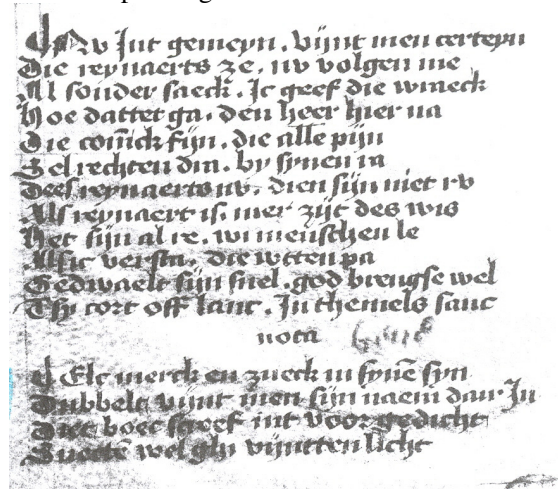 Nv Int gemeyn. vijnt men certeyn
Die reynaerts ze. nv volgen me
Al sonder saeck. Ic geef die wraeck
Hoe dattet ga. den heer hier na
Die conīck fijn. die alle pijn
Sel rechten dra. by synen ra
Dees reynaerts nv. dien sijn niet rv
Als reynaert is. mer zijt des wis
Het sijn al re. wi menschen le
Alsic versta. die wtten pa
Gedwaelt sijn snel. god brengse wel
Tsy cort off lanc. In themels sanc
nota
Elc merck en zueck in synē syn
Dubbelt vijnt men sijn naem dair In
Diet boec screef int voor gedicht
Suectē wel ghi vijntten licht